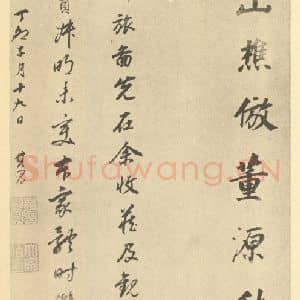 山樵倣董源
旅啚先在余收藏及觀
叔明未变家體时
丁卯月十九日 其昌
Shufawang.CN